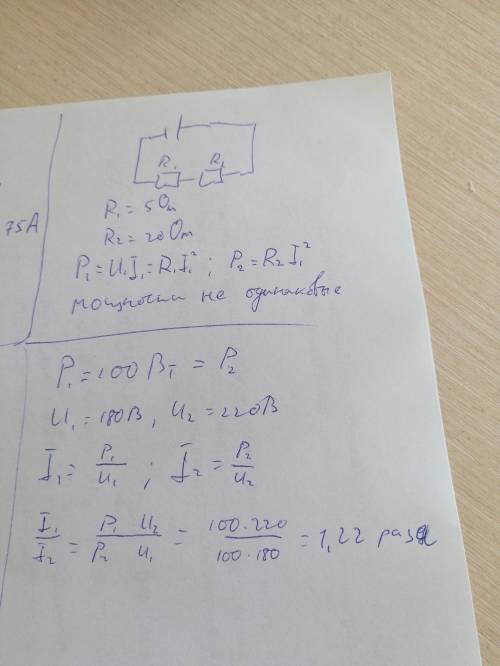 75А
R₁ R₂
R₁ = 5 Ом
R₂ = 20 Ом
P₁ = U₁I₁ = R₁I₁² ; P₂ = R₂I₁²
мощности не одинаковые
P₁ = 100 Вт = P₂
U₁ = 180В, U₂ = 220В
I₁ = P₁/U₁ ; I₂ = P₂/U₂
I₁/I₂ = P₁ U₂/P₂ U₁ = 100·220/100·180 = 1,22 раза